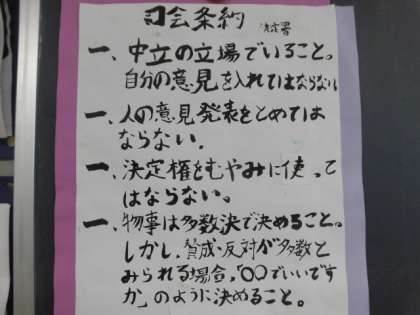 司会条約 決定署
一、中立の立場でいること。
自分の意見を入れてはならない
一、人の意見発表をとめては
ならない.
一、決定権をむやみに使って
はならない。
一、物事は多数決で決めること。
しかし、賛成・反対が多数と
みられる場合、「〇〇でいいです
か」のように決めること。